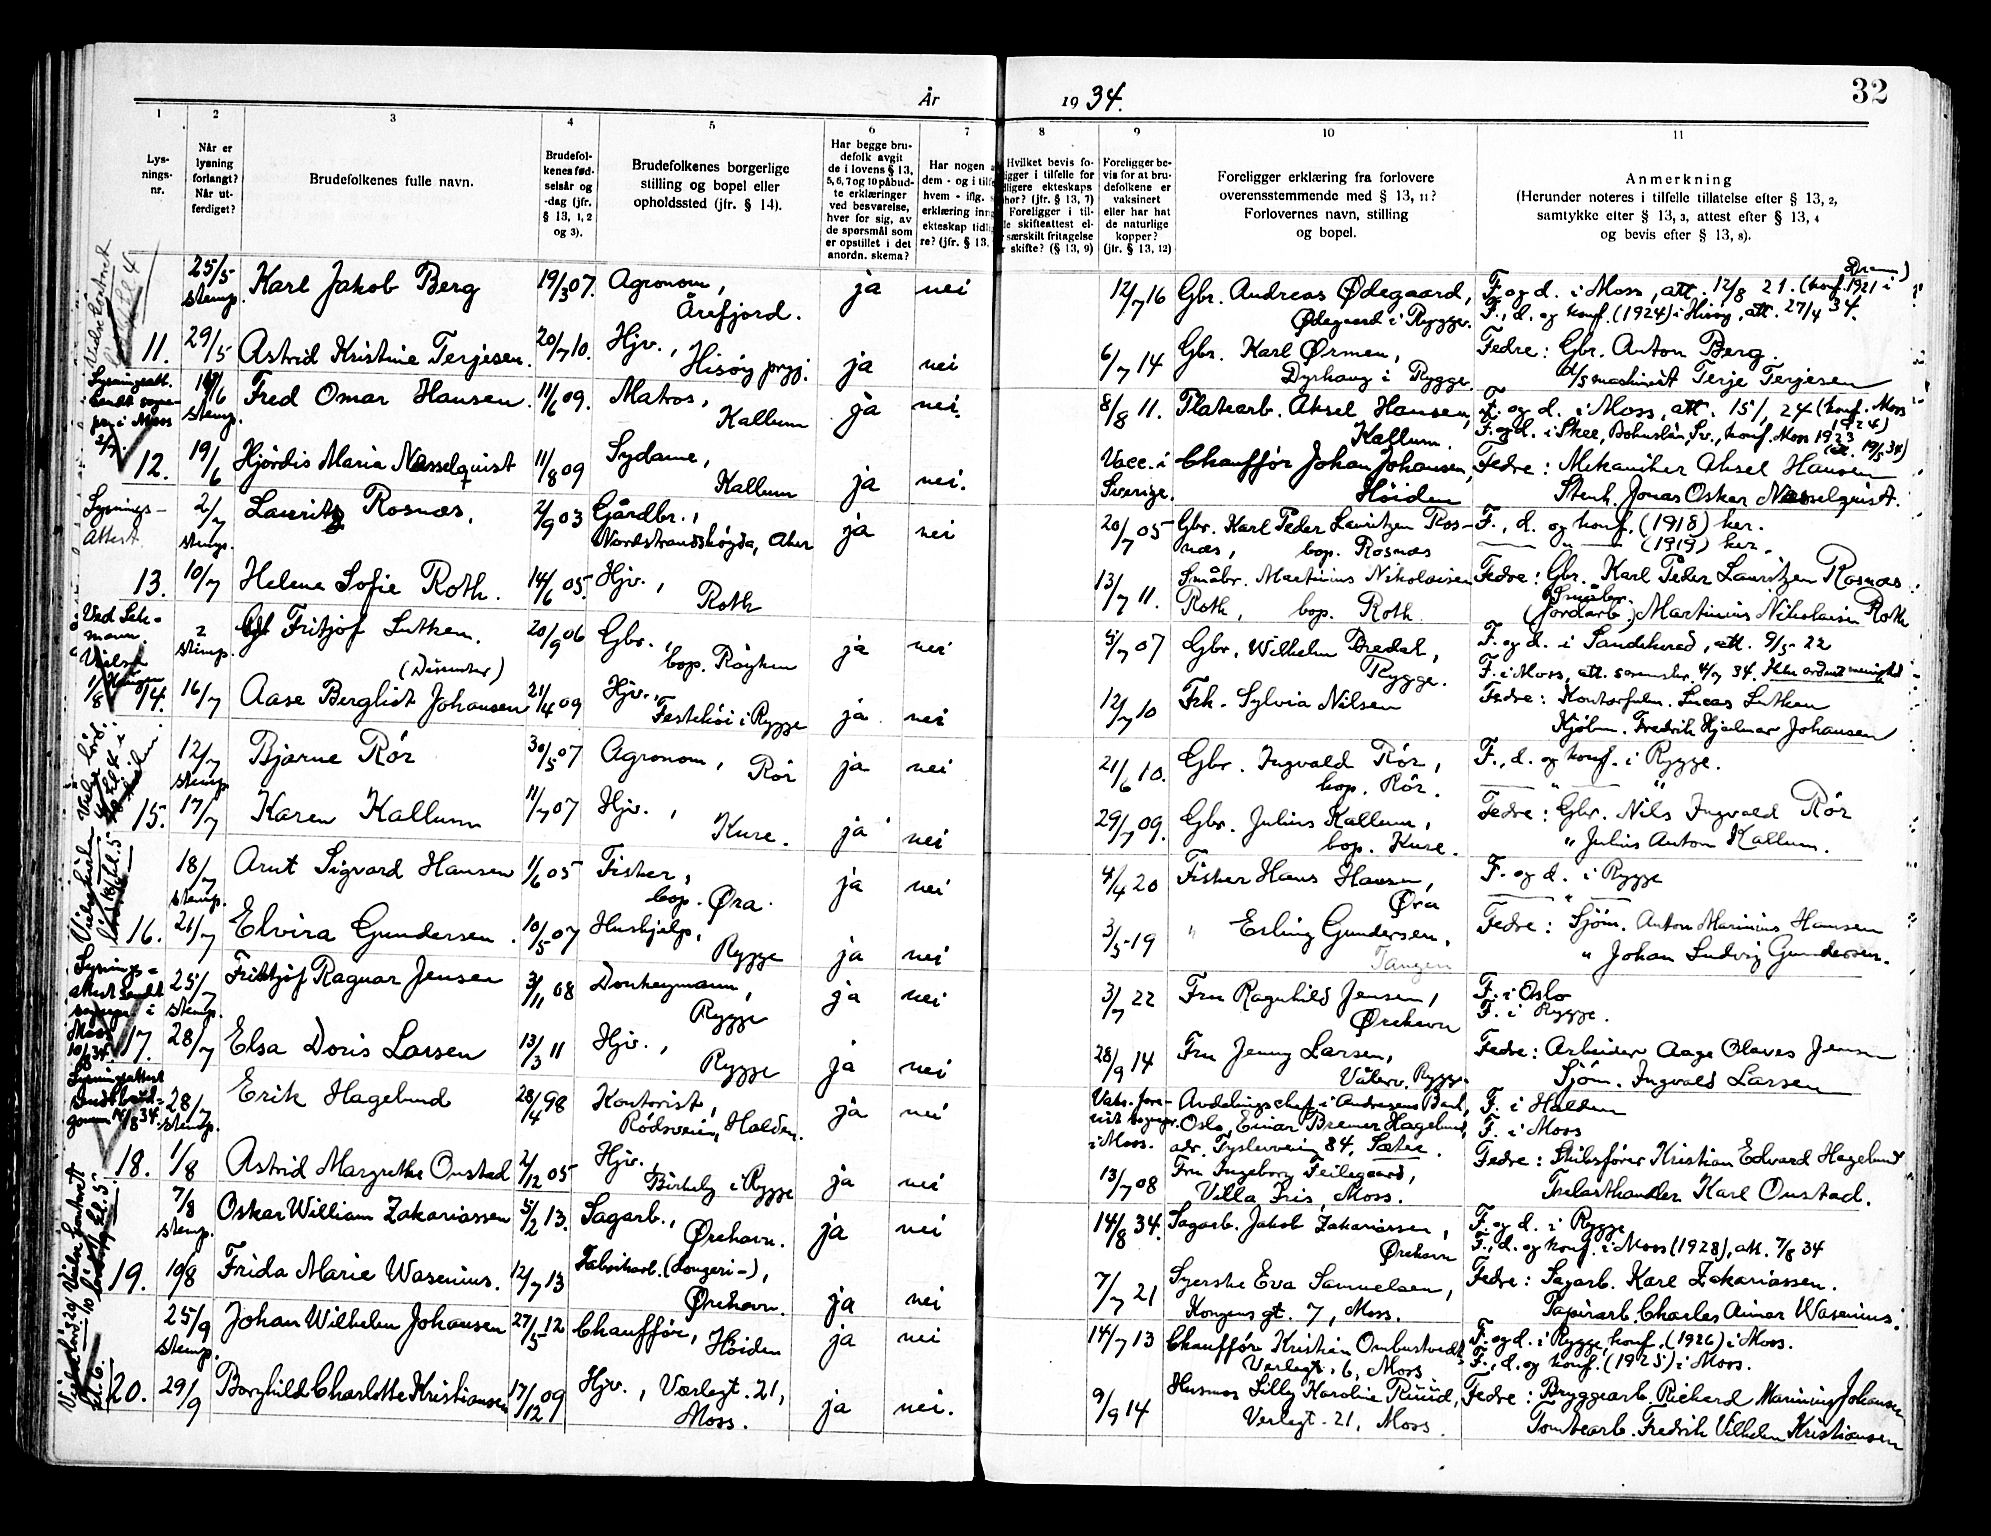 År 1934.
32
1 2 3 4 5 6 7 8 9 10 11
Lys-
nings-
nr.
Når er
lysning
forlangt?
Når ut-
ferdiget?
Brudefolkenes fulle navn.
Brudefol-
kenes fød-
selsår og
-dag (jfr.
§ 13, 1, 2
og 3).
Brudefolkenes borgerlige
stilling og bopel eller
opholdssted (jfr. § 14).
Har begge bru-
defolk avgit
de i lovens § 13,
5, 6, 7 og 10 påbud-
te erklæringer
ved besvarelse,
hver for sig, av
de spørsmål som
er opstillet i det
anordn. skema?
Har nogen a
dem - og i tilf
hvem - iflg.
erklæring inng
ekteskap tidli
re? (jfr. § 13,
Hvilket bevis fo-
ligger i tilfelle for
dligere ekteskaps
hør? (jfr. § 13, 7)
Foreligger i til-
le skifteattest el-
særskilt fritagelse
skifte? (§ 13, 9)
Foreligger be-
vis for at bru-
defolkene er
vaksinert
eller har hat
de naturlige
kopper?
(jfr. § 13, 12)
Foreligger erklæring fra forlovere
overensstemmende med § 13, 11?
Forlovernes navn, stilling
og bopel.
Anmerkning
(Herunder noteres i tilfelle tillatelse efter § 13, 2,
samtykke efter § 13, 3, attest efter § 13, 4
og bevis efter § 13, 8).
25/5 stemp. Karl Jakob Berg 19/3 07. Agronom, Årefjord. ja nei 12/7 16 Gbr. Andreas Ødegaard, Ødegaard i Rygge. F. og d. i Moss, att. 12/8 21. (konf. 1921 i Dram)
F., d. og konf. (1924) i Hisøy, att. 27/4 34.
11. 29/5 Astrid Kristine Terjesen. 20/7 10. Hjv., Hisøy prgj. ja nei 6/7 14 Gbr. Karl Ørmen, Dyrhaug i Rygge. Fedre: Gbr. Anton Berg.
d/s maskinist Terje Terjesen
Lysningsatt. sendt sogne-pr. i Moss
stemp. Fred Omar Hansen. 11/6 09. Matros, Kallum ja nei. 8/8 11. Platearb. Aksel Hansen, Kallum. F. og d. i Moss, att. 15/, 24 (konf. Moss 1924)
F. og d. i Skee, Bohuslän, Sv., konf. Moss 1923
12. 19/6 Hjördis Maria Nesselquist 11/8 09 Sydame, Kallum ja nei. Vacc. i Sverige. Chauffør Johan Johansen, Höiden Fedre: Mekaniker Aksel Hansen
Stenh. Jonas Oskar Nesselquist.
Lysnings-
attest.
2/7 stemp. Lauritz Rosnæs. 2/9 03 Gårdbr., Nordstrandshøgda, Aker ja nei 20/7 05 Gbr. Karl Peder Lauritzen Ros-
næs, bop. Rosnæs F., d. og konf. (1918) her.
— " — (1919) her.
13. 10/7 Helene Sofie Roth. 14/6 05. Hjv., Roth 13/7 11. Småbr. Martinius Nikolaisen
Roth, bop. Roth Fedre: Gbr. Karl Peder Lauritzen Rosnæs
Småbr. (jordarb.) Martinius Nikolaisen Roth
2 stemp. Fritjof Lutken. (Dissenter) 20/9 06 Gbr., bop. Röyken ja nei 4/7 07 Gbr. Wilhelm Bredal, Rygge. F. og d. i Sandeherad, att. 9/5 22
F. i Moss, att. 4/7 34.
14. 16/7 Aase Bergliot Johansen 21/4 09 Hjv., Festehöi i Rygge ja nei 12/7 10 Frk. Sylvia Nilsen Fedre: Kontorfulm. Lucas Lutken
Kjöbm. Fredrik Hjalmar Johansen
12/7 stemp Bjarne Rör 30/5 07 Agronom, Rör ja nei 21/6 10. Gbr. Ingvald Rör, bop. Rör. F., d. og konf. i Rygge.
— " — "
15. 17/7 Karen Kallum 11/7 07 Hjv., Kure. ja nei 29/7 09. Gbr. Julius Kallum, bop. Kure. Fedre: Gbr. Nils Ingvald Rör
" Julius Anton Kallum.
18/7 stemp. Arnt Sigvard Hansen 1/6 05 Fisker, bop. Øra. ja nei 4/4 20 Fisker Hans Hansen, Øra F. og d. i Rygge
— " —
16. 21/7 Elvira Gundersen. 10/5 07 Hushjelp, Rygge ja nei 3/5 19 " Erling Gundersen, Tangen Fedre: Sjöm. Anton Marinius Hansen
" Johan Ludvig Gundersen.
Lysnings-
attest sendt
sognepr. i
Moss
10/8 34.
25/7 stemp. Fridtjof Ragnar Jensen 3/11 08 Donkeymann, Rygge ja nei 3/7 22 Fru Ragnhild Jensen, Ørehavn F. i Oslo
F. i Rygge.
17. 28/7 Elsa Doris Larsen 13/3 11 Hjv., Rygge ja nei 28/9 14 Fru Jenny Larsen, Våler, Rygge. Fedre: Arbeider Aage Olaves Jensen
Sjöm. Ingvald Larsen
Lysningsattest
sendt brud-
gommen 14/8 34.
28/7 stemp. Erik Hagelund 28/4 98 Kontorist, Rödsveien, Halden. ja nei Vaks. fore-
vist sognepr.
i Moss. Avdelingschef i Andresens Bank,
Oslo, Einar Bremer Hagelund,
adr. Tyslevveien 84, Sæter. F. i Halden
F. i Moss
18. 1/8 Astrid Margrethe Onstad 2/12 05 Hjv., Birkely i Rygge ja nei 13/7 08 Fru Ingeborg Teilegaard,
Villa Iris, Moss. Fedre: Skibsfører Kristian Edvard Hagelund
Trelasthandler Karl Onstad.
7/8 stemp. Oskar William Zakariassen 5/2 13. Sagarb., Ørehavn. ja nei 14/8 34. Sagarb. Jakob Zakariassen, Ørehavn F. og d. i Rygge
F., d. og konf. i Moss (1928), att. 7/8 34
19. 10/8 Frida Marie Wasenius. 12/7 13 Fabrikarb. (Longeri-), Ørehavn. ja nei 7/7 21 Syerske Eva Samuelsen,
Kongens gt. 7, Moss. Fedre: Sagarb. Karl Zakariassen.
Papirarb. Charles Aimar Wasenius.
25/9 stemp. Johan Wilhelm Johansen 27/5 12 Chauffør, Höiden ja nei 14/7 13 Chauffør Kristian Ombustvedt,
Verlegt. 6, Moss F. og d. i Rygge, konf. (1926) i Moss.
F., d. og konf. (1925) i Moss.
20. 29/9 Borghild Charlotte Kristiansen 17/12 09 Hjv., Værlegt. 21,
Moss. ja nei. 9/9 14 Husmor Lilly Karoline Ruud,
Verlegt. 21, Moss. Fedre: Bryggearb. Richard Marinius Johansen
Tomtearb. Fredrik Vilhelm Kristiansen